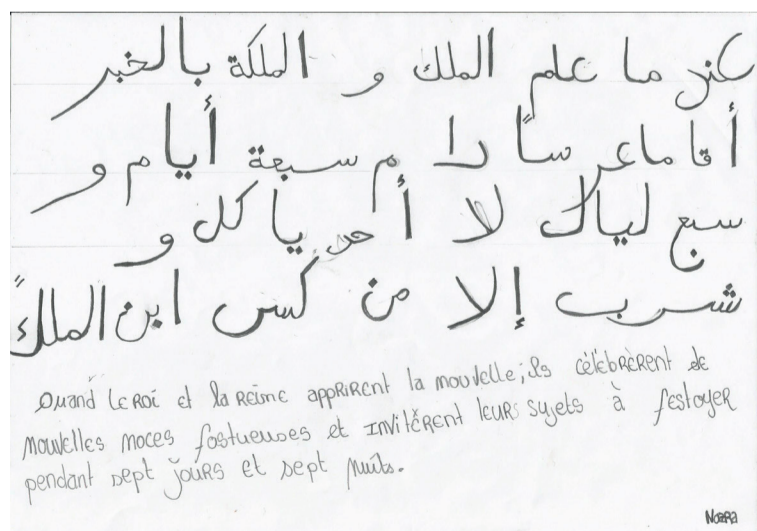 عند ما علم الملك و الملكة بالخبر
أقا ما عر ساً دا م سبعة أيا م و
سبع ليال لا أ حد يا كل و
شرب إلا من كس ابن الملك
Quand LE ROI et la REINE APPRIRENT la nouvelle; ils célébrèrent de
nouvelles noces fastueuses et INVITÈRENT leurs sujets à festoyer
pendant sept jours et sept nuits.
NORRA